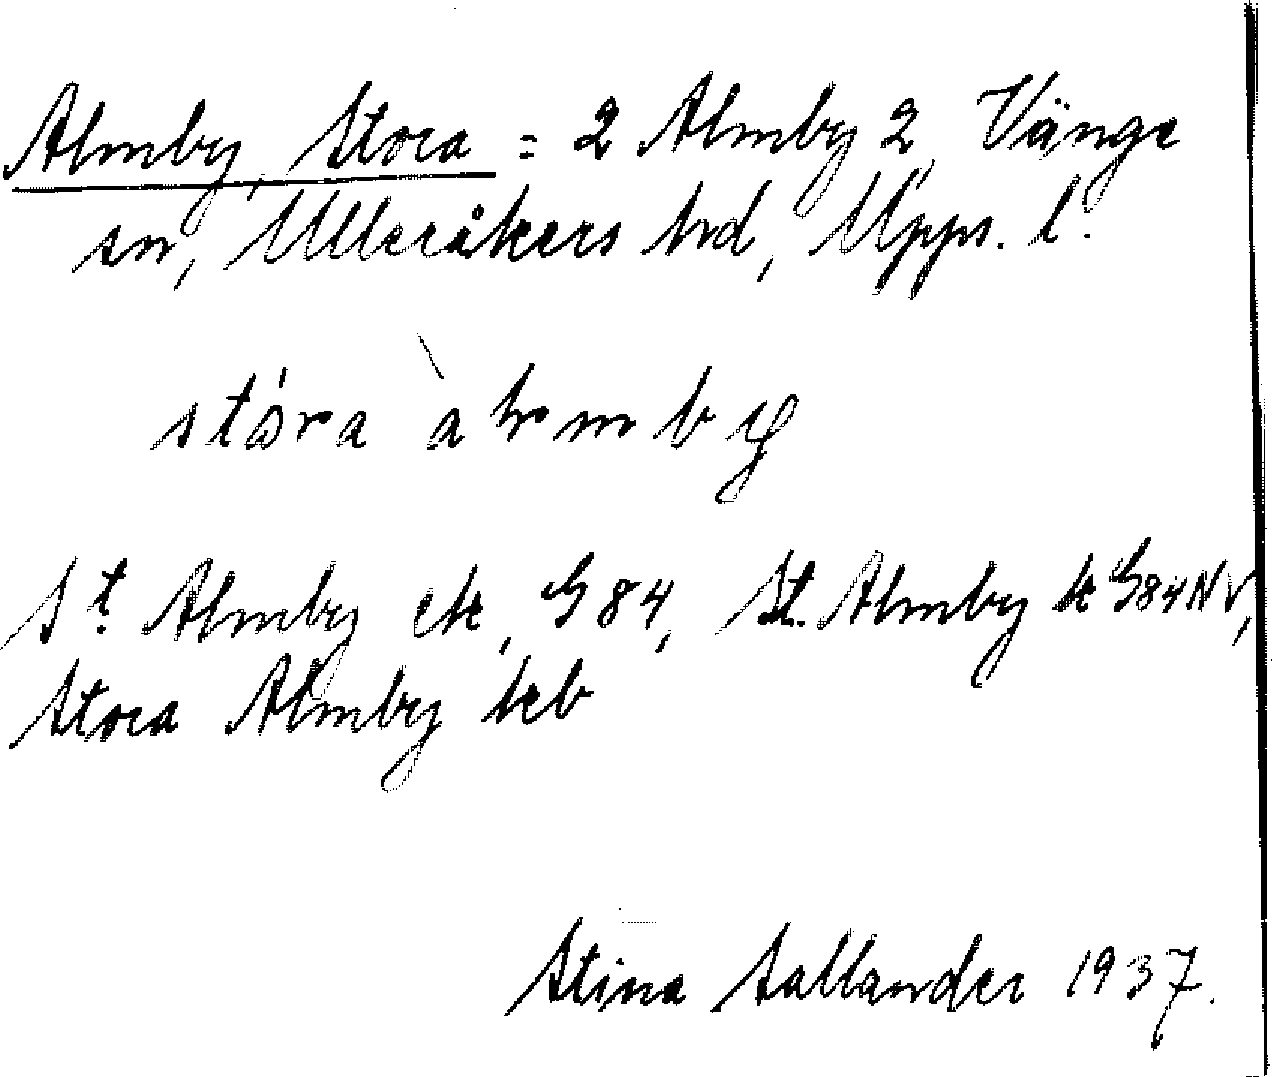 Almby, Stora = 2 Almby 2, Vänge
sn, Ulleråkers hrd, Upps. l.
St. Almby ek, G 84, St. Almby k G84NV,
Stora Almby keb
Stina Sallander 1937.